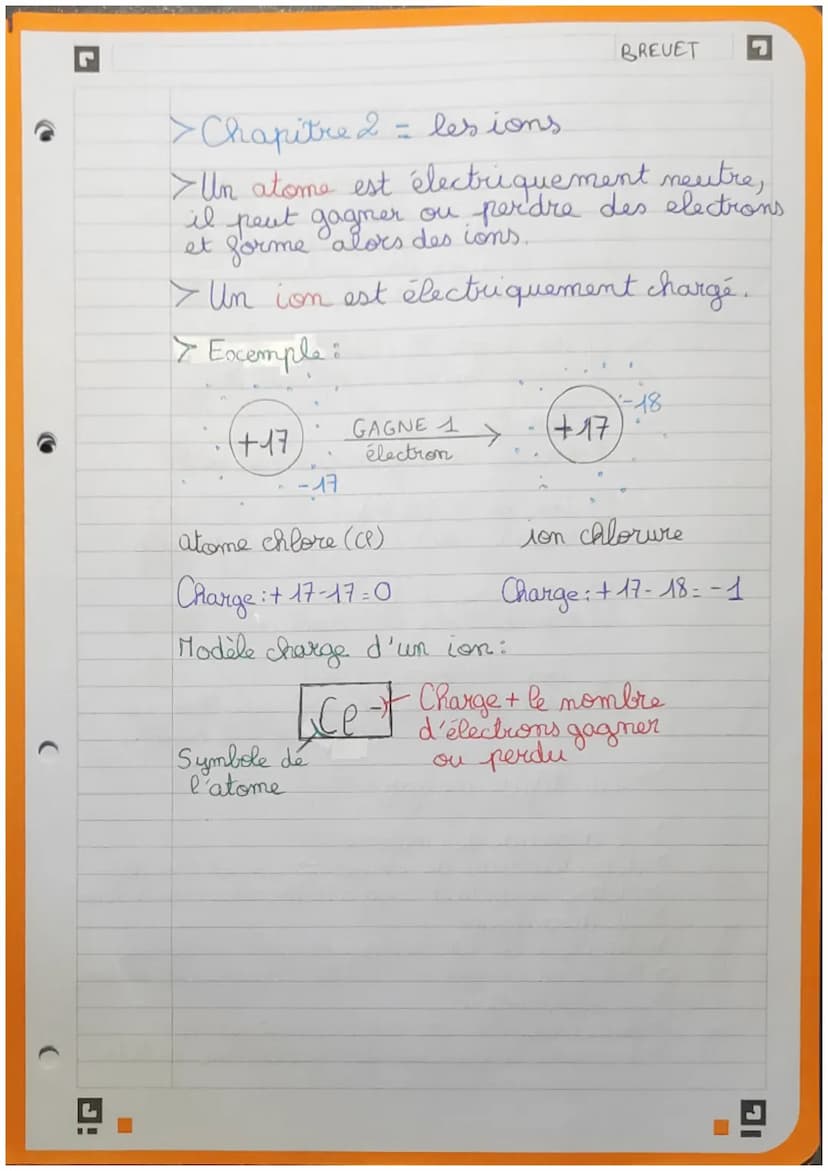 BREVET
>Chapitre 2 = les ions
>Un atome est électriquement neutre,
il peut gagner ou perdre des electrons
et forme alors des ions.
> Un ion est électriquement chargé.
> Exemple :
+17
-17
GAGNE 1
électron
+17
-18
atome chlore (Cl)
ion chlorure
Charge : + 17-17=0
Charge : + 17- 18= -1
Modèle charge d'un ion :
Cl -
Charge + le nombre
d'électrons gagner
ou perdu
Symbole de
l'atome